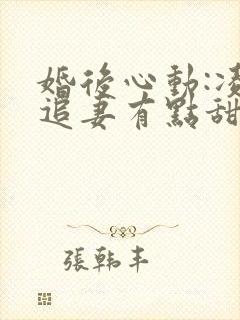 婚後心動:凌
追妻有點甜
張韓丰